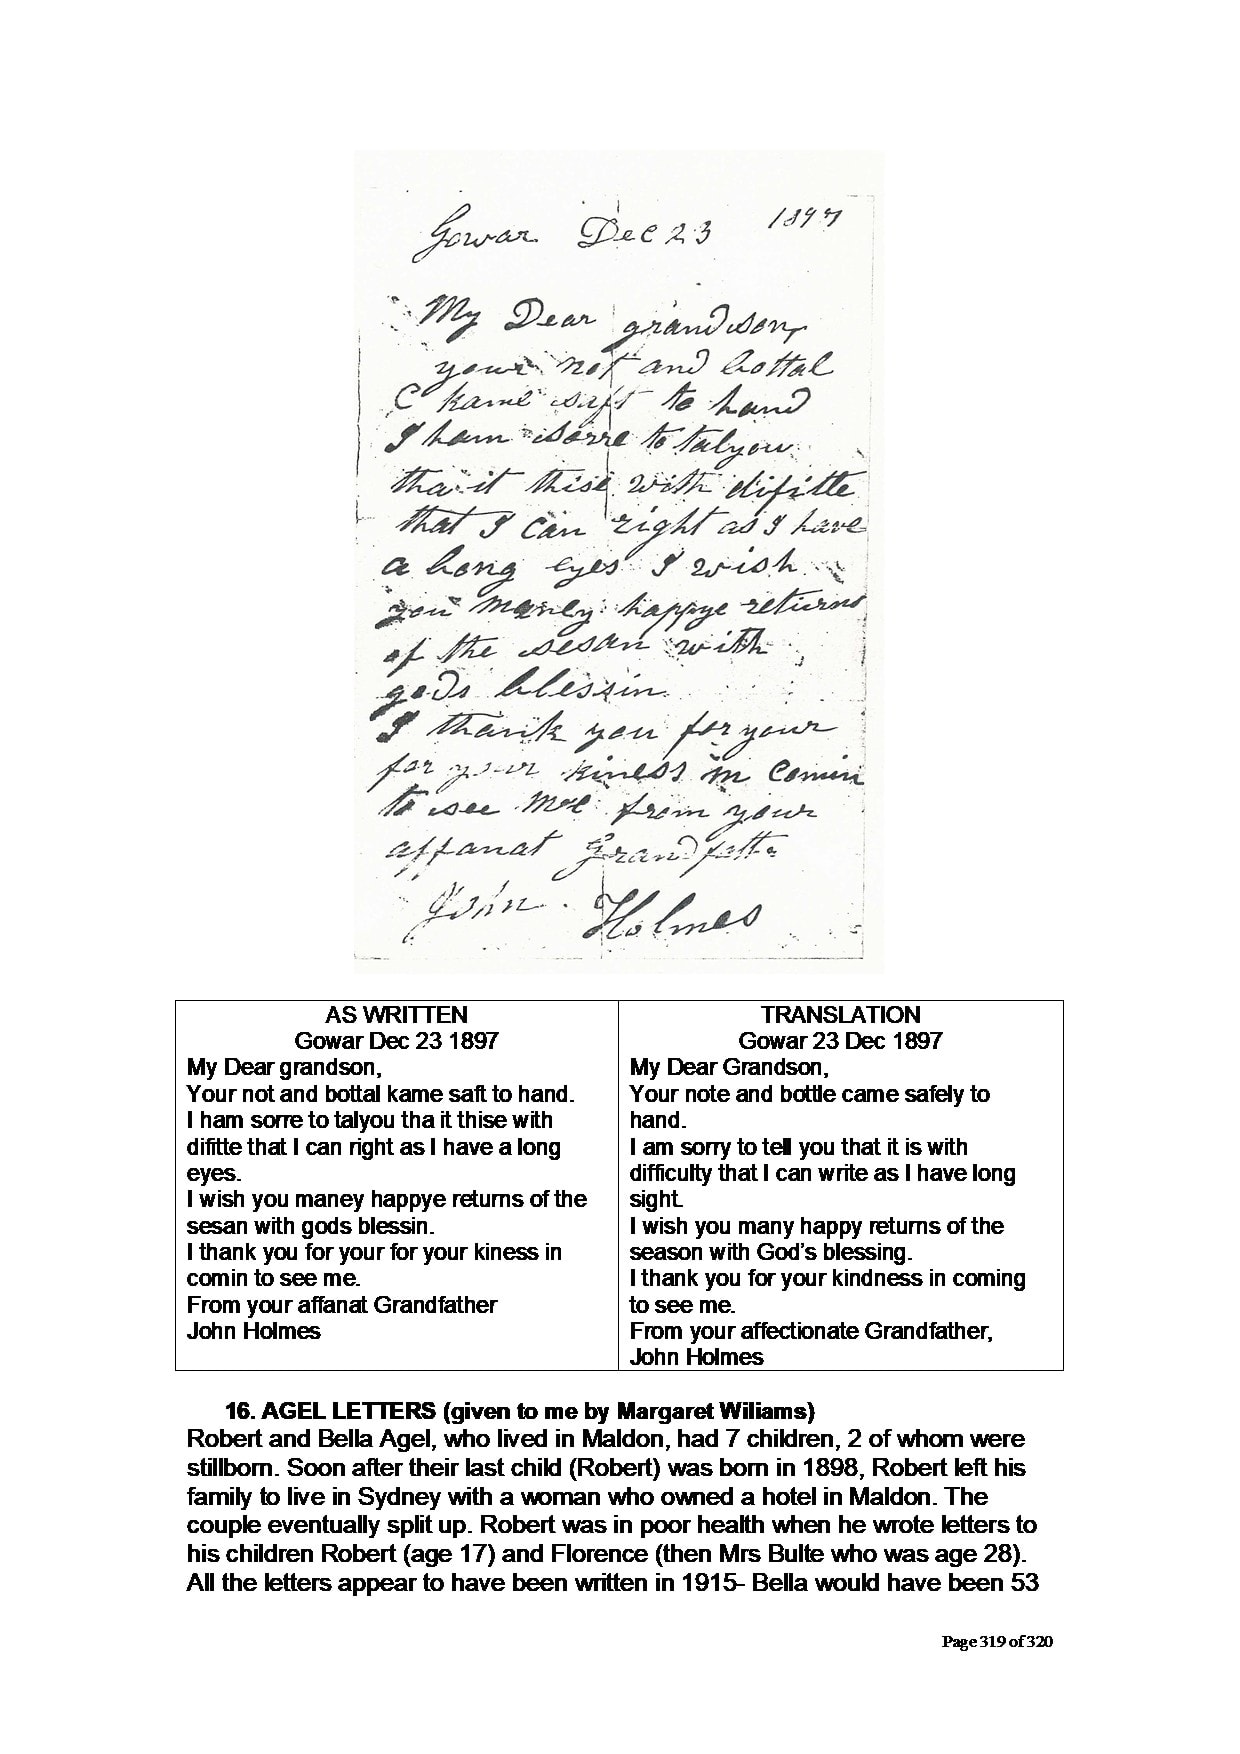 Gowar Dec 23 1897
My Dear grandson,
your not and bottal
C kame saft to hand
I ham sorre to talyou
tha it thise with difitte
that I can right as I have
a long eyes I wish
you maney happye returns
of the sesan with
gods blessin
I thank you for your
for your kiness in comin
to see me from your
affanat Grandfath
John Holmes
AS WRITTEN
Gowar Dec 23 1897
My Dear grandson,
Your not and bottal kame saft to hand.
I ham sorre to talyou tha it thise with
difitte that I can right as I have a long
eyes.
I wish you maney happye returns of the
sesan with gods blessin.
I thank you for your for your kiness in
comin to see me.
From your affanat Grandfather
John Holmes
TRANSLATION
Gowar 23 Dec 1897
My Dear Grandson,
Your note and bottle came safely to
hand.
I am sorry to tell you that it is with
difficulty that I can write as I have long
sight.
I wish you many happy returns of the
season with God’s blessing.
I thank you for your kindness in coming
to see me.
From your affectionate Grandfather,
John Holmes
16. AGEL LETTERS (given to me by Margaret Wiliams)
Robert and Bella Agel, who lived in Maldon, had 7 children, 2 of whom were
stillborn. Soon after their last child (Robert) was born in 1898, Robert left his
family to live in Sydney with a woman who owned a hotel in Maldon. The
couple eventually split up. Robert was in poor health when he wrote letters to
his children Robert (age 17) and Florence (then Mrs Bulte who was age 28).
All the letters appear to have been written in 1915- Bella would have been 53
Page 319 of 320